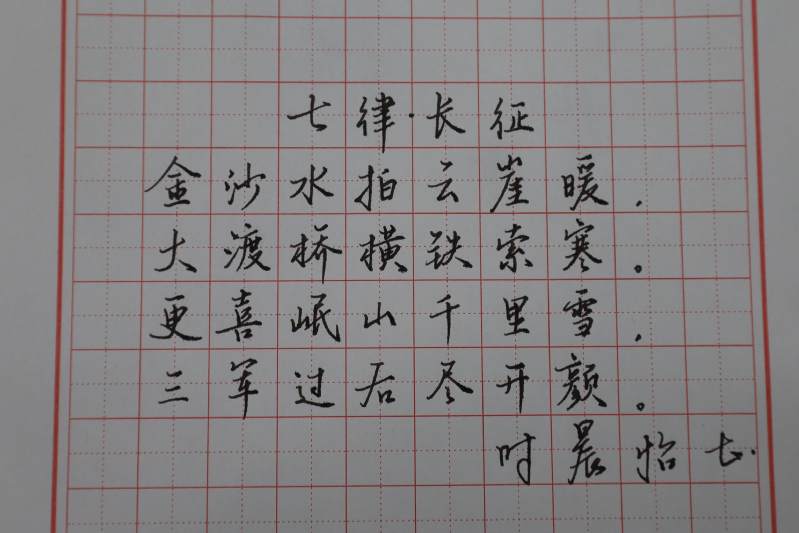 七律·长征
金沙水拍云崖暖,
大渡桥横铁索寒。
更喜岷山千里雪,
三军过后尽开颜。
时晨怡七